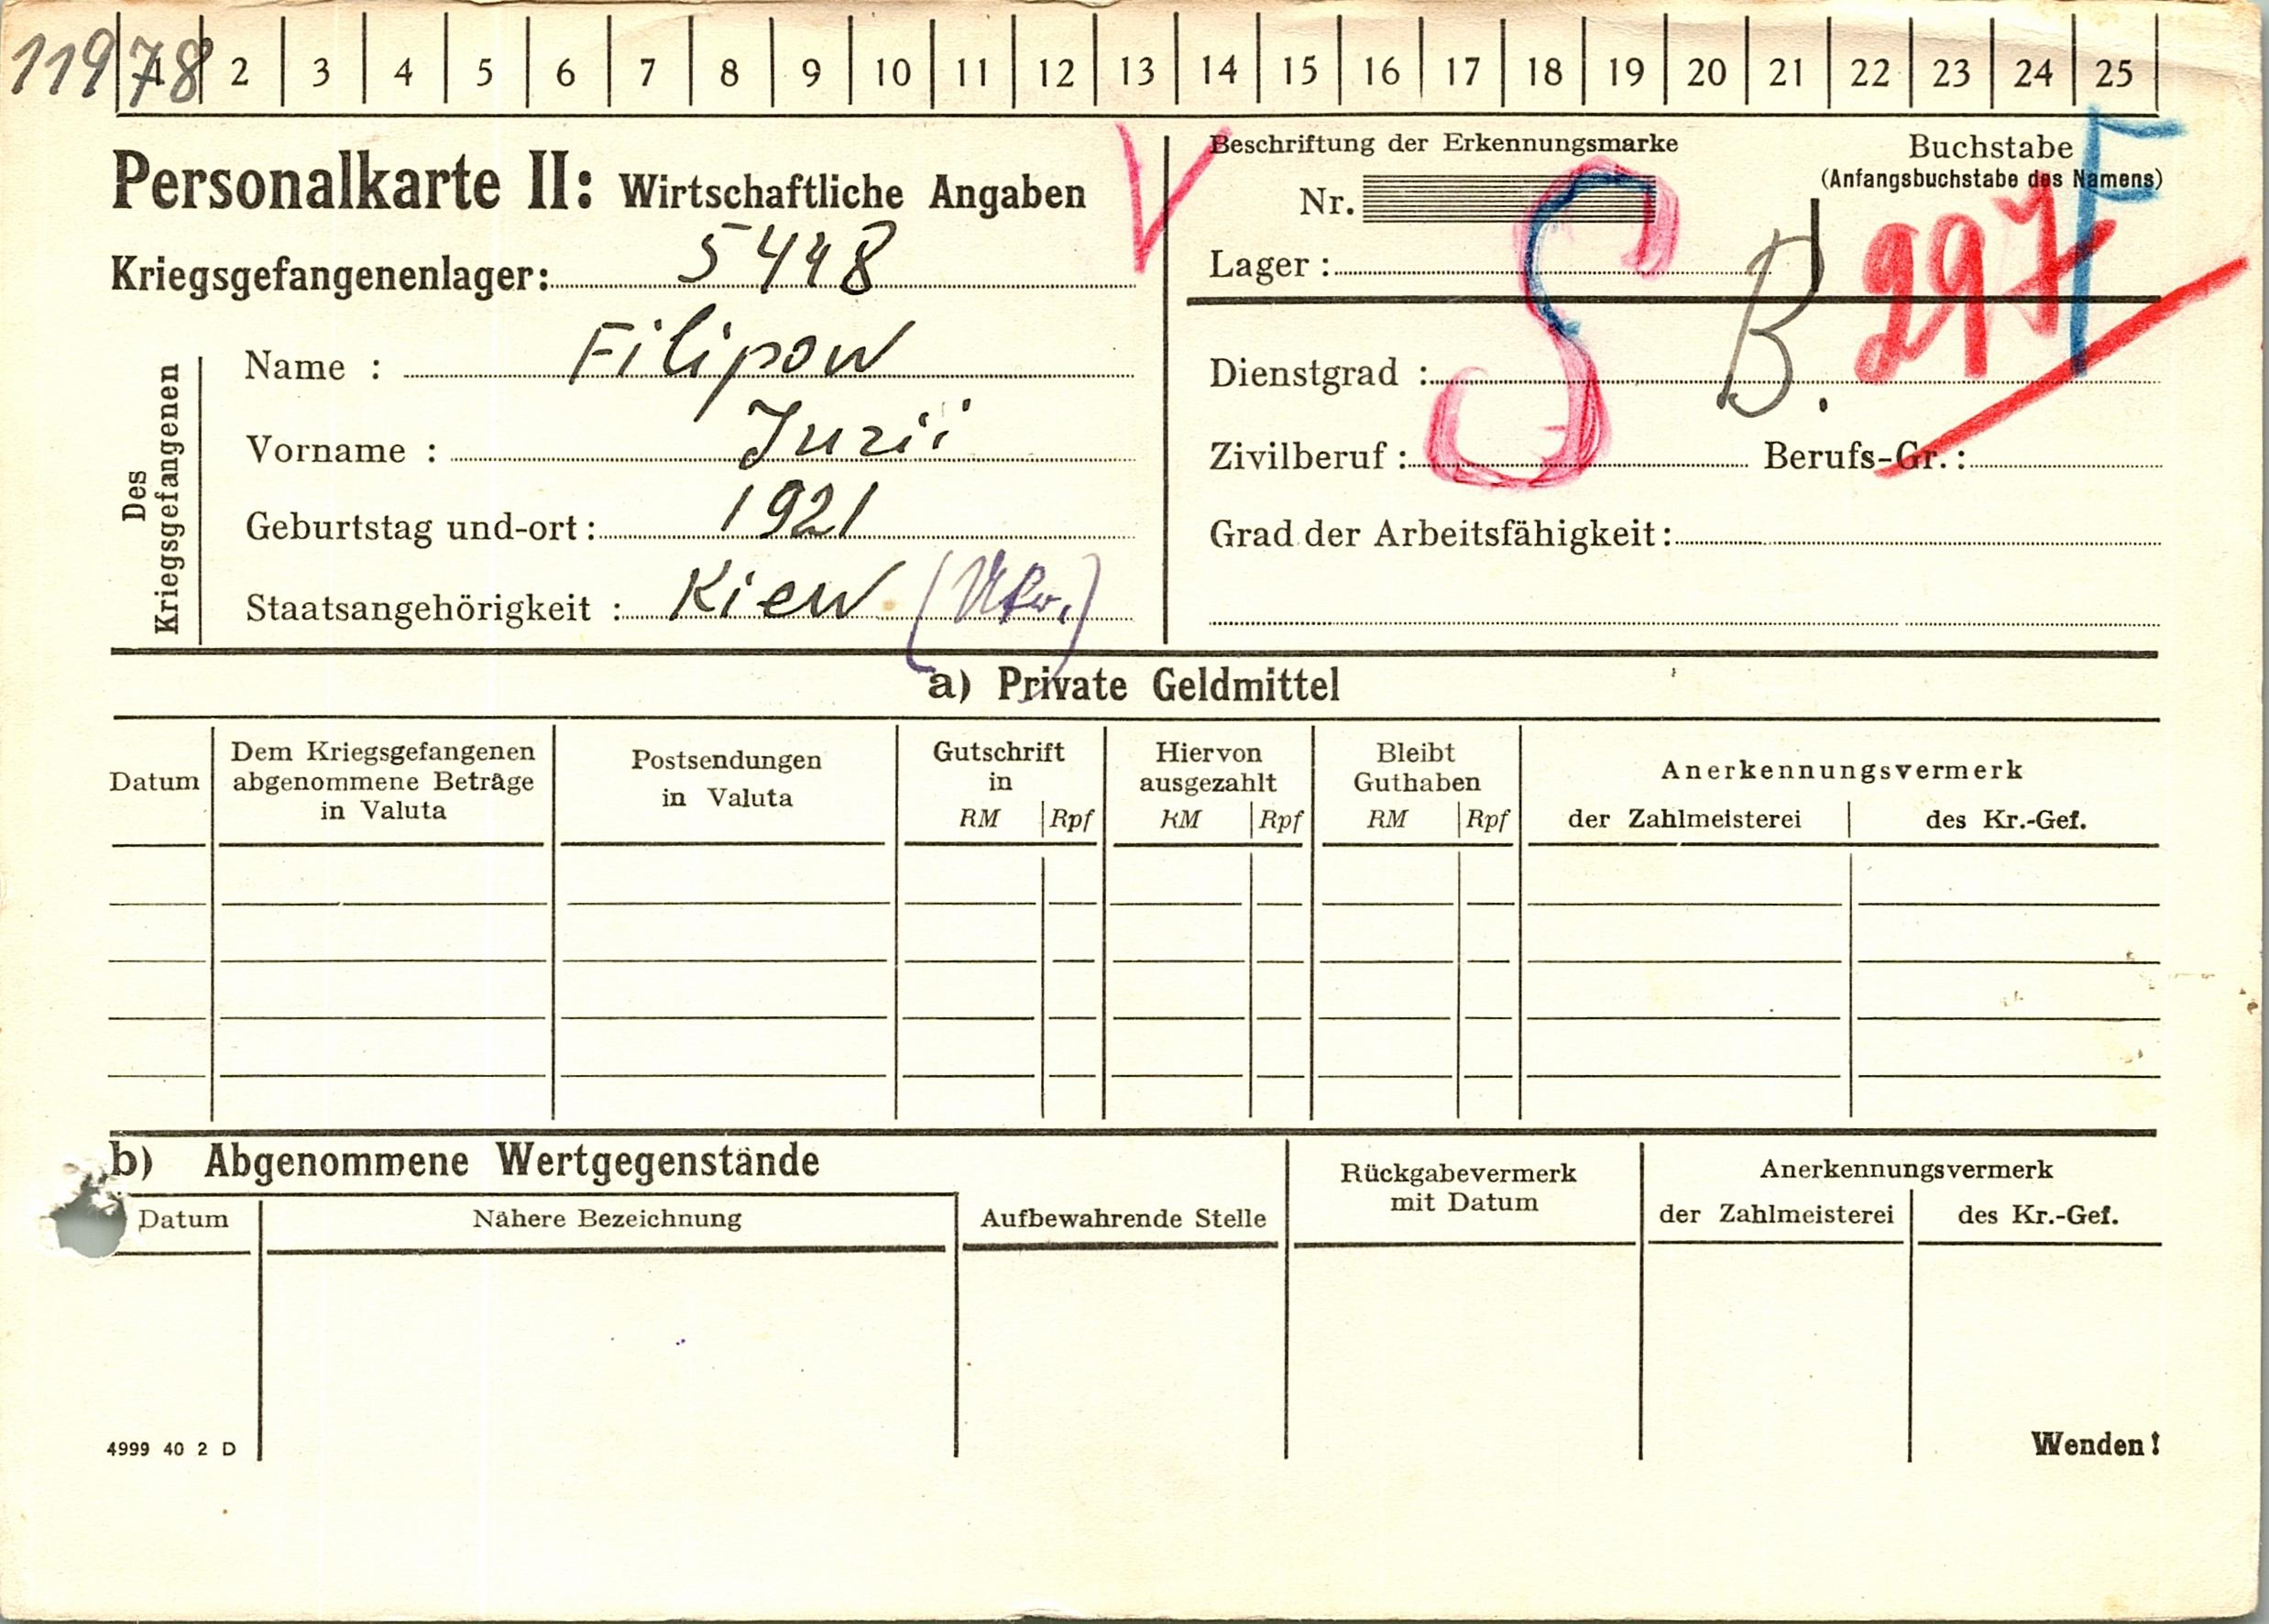 11978
1 2 3 4 5 6 7 8 9 10 11 12 13 14 15 16 17 18 19 20 21 22 23 24 25
Personalkarte II: Wirtschaftliche Angaben
V
Kriegsgefangenenlager: 5448
Des Kriegsgefangenen
Name : Filipow
Vorname : Jurii
Geburtstag und-ort: 1921
Staatsangehörigkeit : Kiew (Ukr.)
Beschriftung der Erkennungsmarke
Nr.
Lager :
Buchstabe
(Anfangsbuchstabe des Namens)
F
S
B.
297
Dienstgrad :
Zivilberuf : Berufs-Gr. :
Grad der Arbeitsfähigkeit:
a) Private Geldmittel
Datum
Dem Kriegsgefangenen
abgenommene Beträge
in Valuta
Postsendungen
in Valuta
Gutschrift
in
RM Rpf
Hiervon
ausgezahlt
RM Rpf
Bleibt
Guthaben
RM Rpf
Anerkennungsvermerk
der Zahlmeisterei des Kr.-Gef.
b) Abgenommene Wertgegenstände
Datum
Nähere Bezeichnung
Aufbewahrende Stelle
Rückgabevermerk
mit Datum
Anerkennungsvermerk
der Zahlmeisterei des Kr.-Gef.
4999 40 2 D
Wenden!